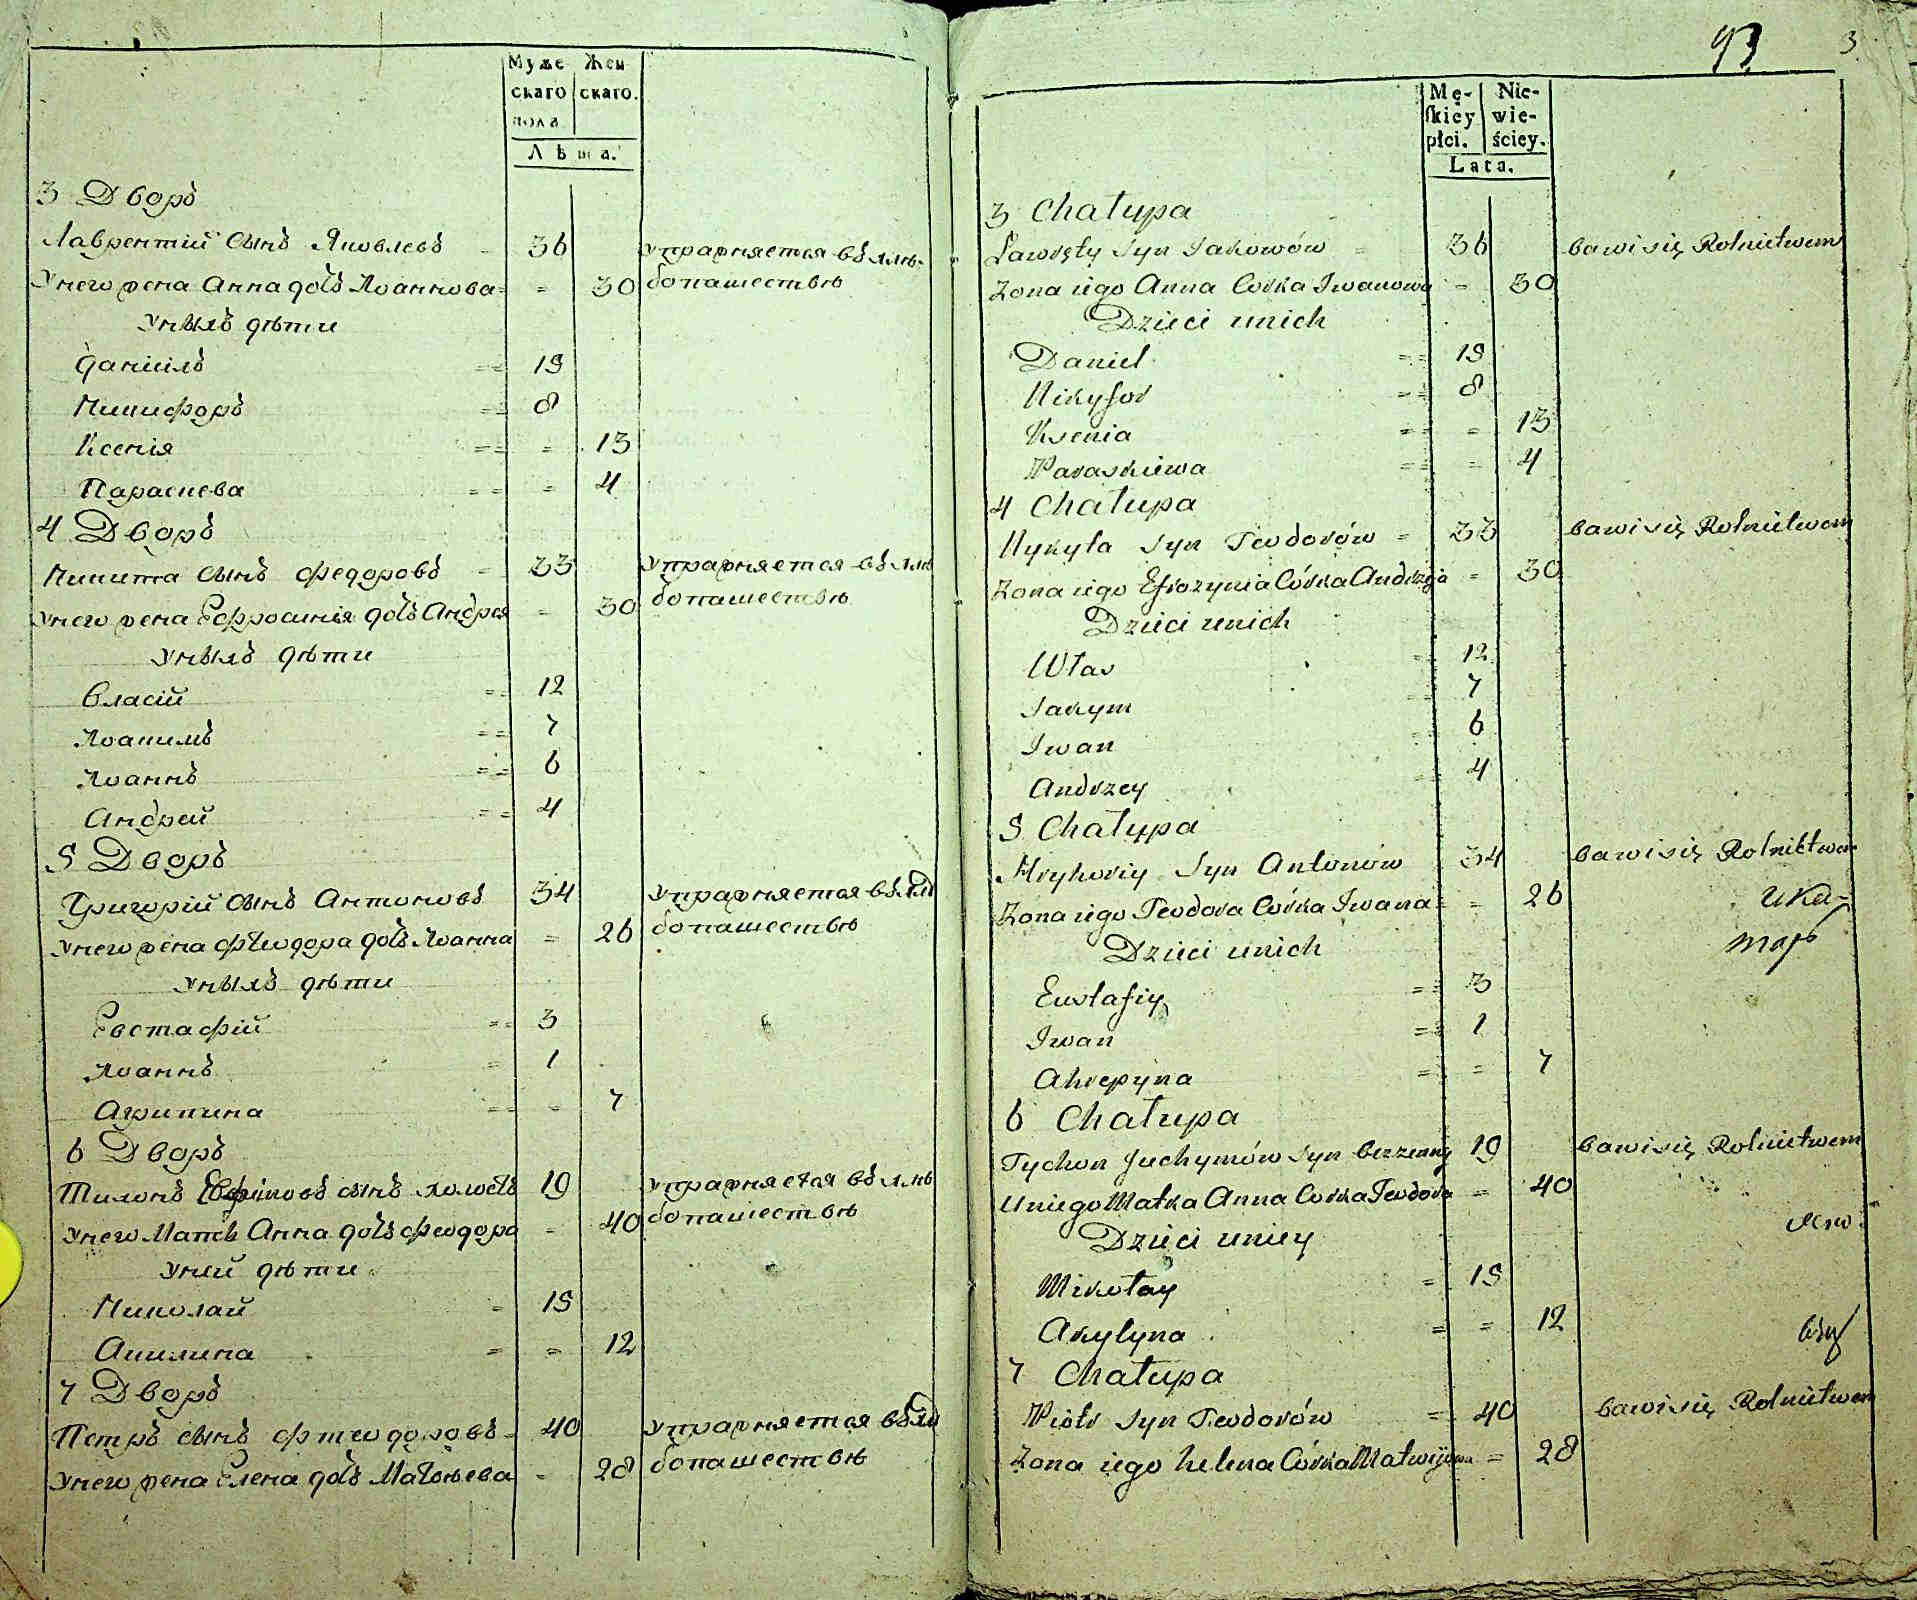 Муже Жен
скаго скаго.
пола
Лѣта.
3 Дворъ
Лаврентій сынъ Яковлевъ 36 упражняется въ хлѣ-
У него жена Анна дочь Іоаннова 30 бопашествѣ
У нихъ дѣти
Даніилъ 15
Никифоръ 8
Ксенія 13
Параскева 4
4 Дворъ
Никита сынъ Федоровъ 33 упражняется въ хлѣ
У него жена Ефросинія дочь Андрея 30 бопашествѣ
У нихъ дѣти
Власій 12
Іоакимъ 7
Іоаннъ 6
Андрей 4
5 Дворъ
Григорій сынъ Антоновъ 34 упражняется въ хлѣ
У него жена Феодора дочь Іоанна 26 бопашествѣ
У нихъ дѣти
Евстафій 3
Іоаннъ 1
Агрипина 7
6 Дворъ
Тихонъ сынъ холостъ 19 упражняется въ хлѣ
У него Мать Анна дочь Феодора 40 бопашествѣ
У ней дѣти
Николай 15
Акилина 12
7 Дворъ
Петръ сынъ Фтеодоровъ 40 упражняется въ хлѣ
У него жена Елена дочь Матвѣева 28 бопашествѣ
93 3
Mę- Nie-
skiey wie-
płci. ściey.
Lata.
3 Chałupa
Ławręty Syn Jakowów 36 bawi się Rolnictwem
Żona iego Anna Córka Iwanowa 30
Dzieci unich
Daniel 15
Nikyfor 8
Ksenia 13
Paraskiewa 4
4 Chałupa
Nykyta Syn Teodorów 33 bawi się Rolnictwem
Żona iego Efrozynia Córka Andrzeja 30
Dzieci unich
Włas 12
Jakym 7
Iwan 6
Andrzey 4
5 Chałupa
Hryhoriy Syn Antonów 34 bawi się Rolnictwem
Żona iego Teodora Córka Iwana 26
Dzieci unich
Eustafiy 3
Iwan 1
Ahrepyna 7
6 Chałupa
Tychon Juchymów Syn bezzenny 19 bawi się Rolnictwem
Uniego Matka Anna Córka Teodora 40
Dzieci uniey
Mikołay 15
Akylyna 12
7 Chałupa
Piotr Syn Teodorów 40 bawi się Rolnictwem
Żona iego Helena Córka Matwijowa 28